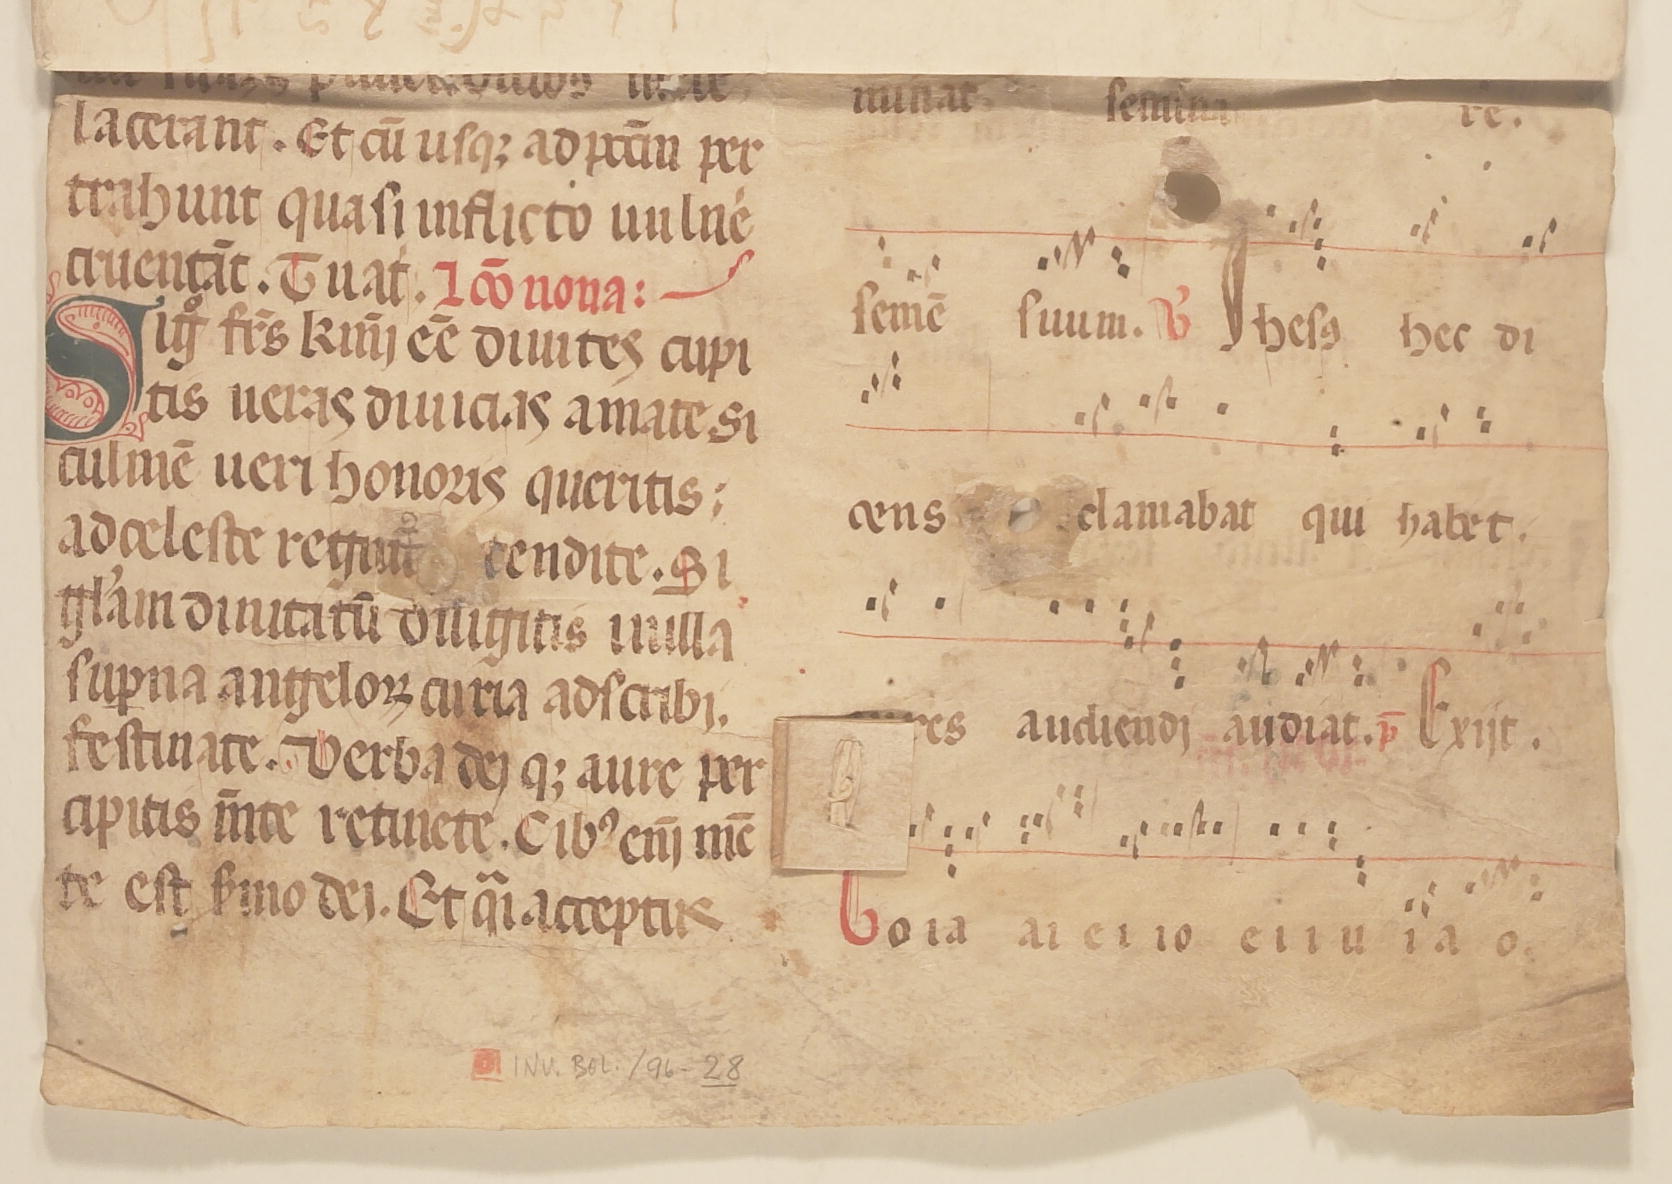 lacerant. Et cū usqꝫ ad pctm̄ per
trahunt quasi inflicto uulne
cruentāt. Tu aūt. Lc̄o nona:
Sigͦ fr̄s km̄i eē diuites cupi
tis ueras diuicias amate si
culmē ueri honoris queritis;
ad celeste regnū tendite. Si
gl̄am diuitatū diligitis in illa
suꝑna angeloꝝ curia adscribi.
festinate. Verba dei qꝫ aure per
cipitis m̄te retinete. Cibꝰ eni mē
te est s̄mo dei. Et q̄i acceptus
minat semina re.
semē suum. V̄ Jhesꝯ hec di
cens clamabat qui habet.
aures audiendi audiat. p̄ Exiit.
boia ai e i io e i i u i a o.
INV. BOL. /96-28